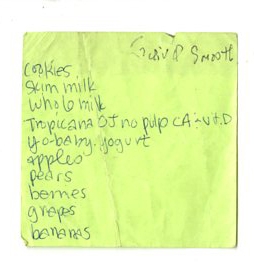 Smooth
cookies
skim milk
whole milk
Tropicana OJ no pulp CA + Vit.D
yo-baby yogurt
apples
pears
berries
grapes
bananas